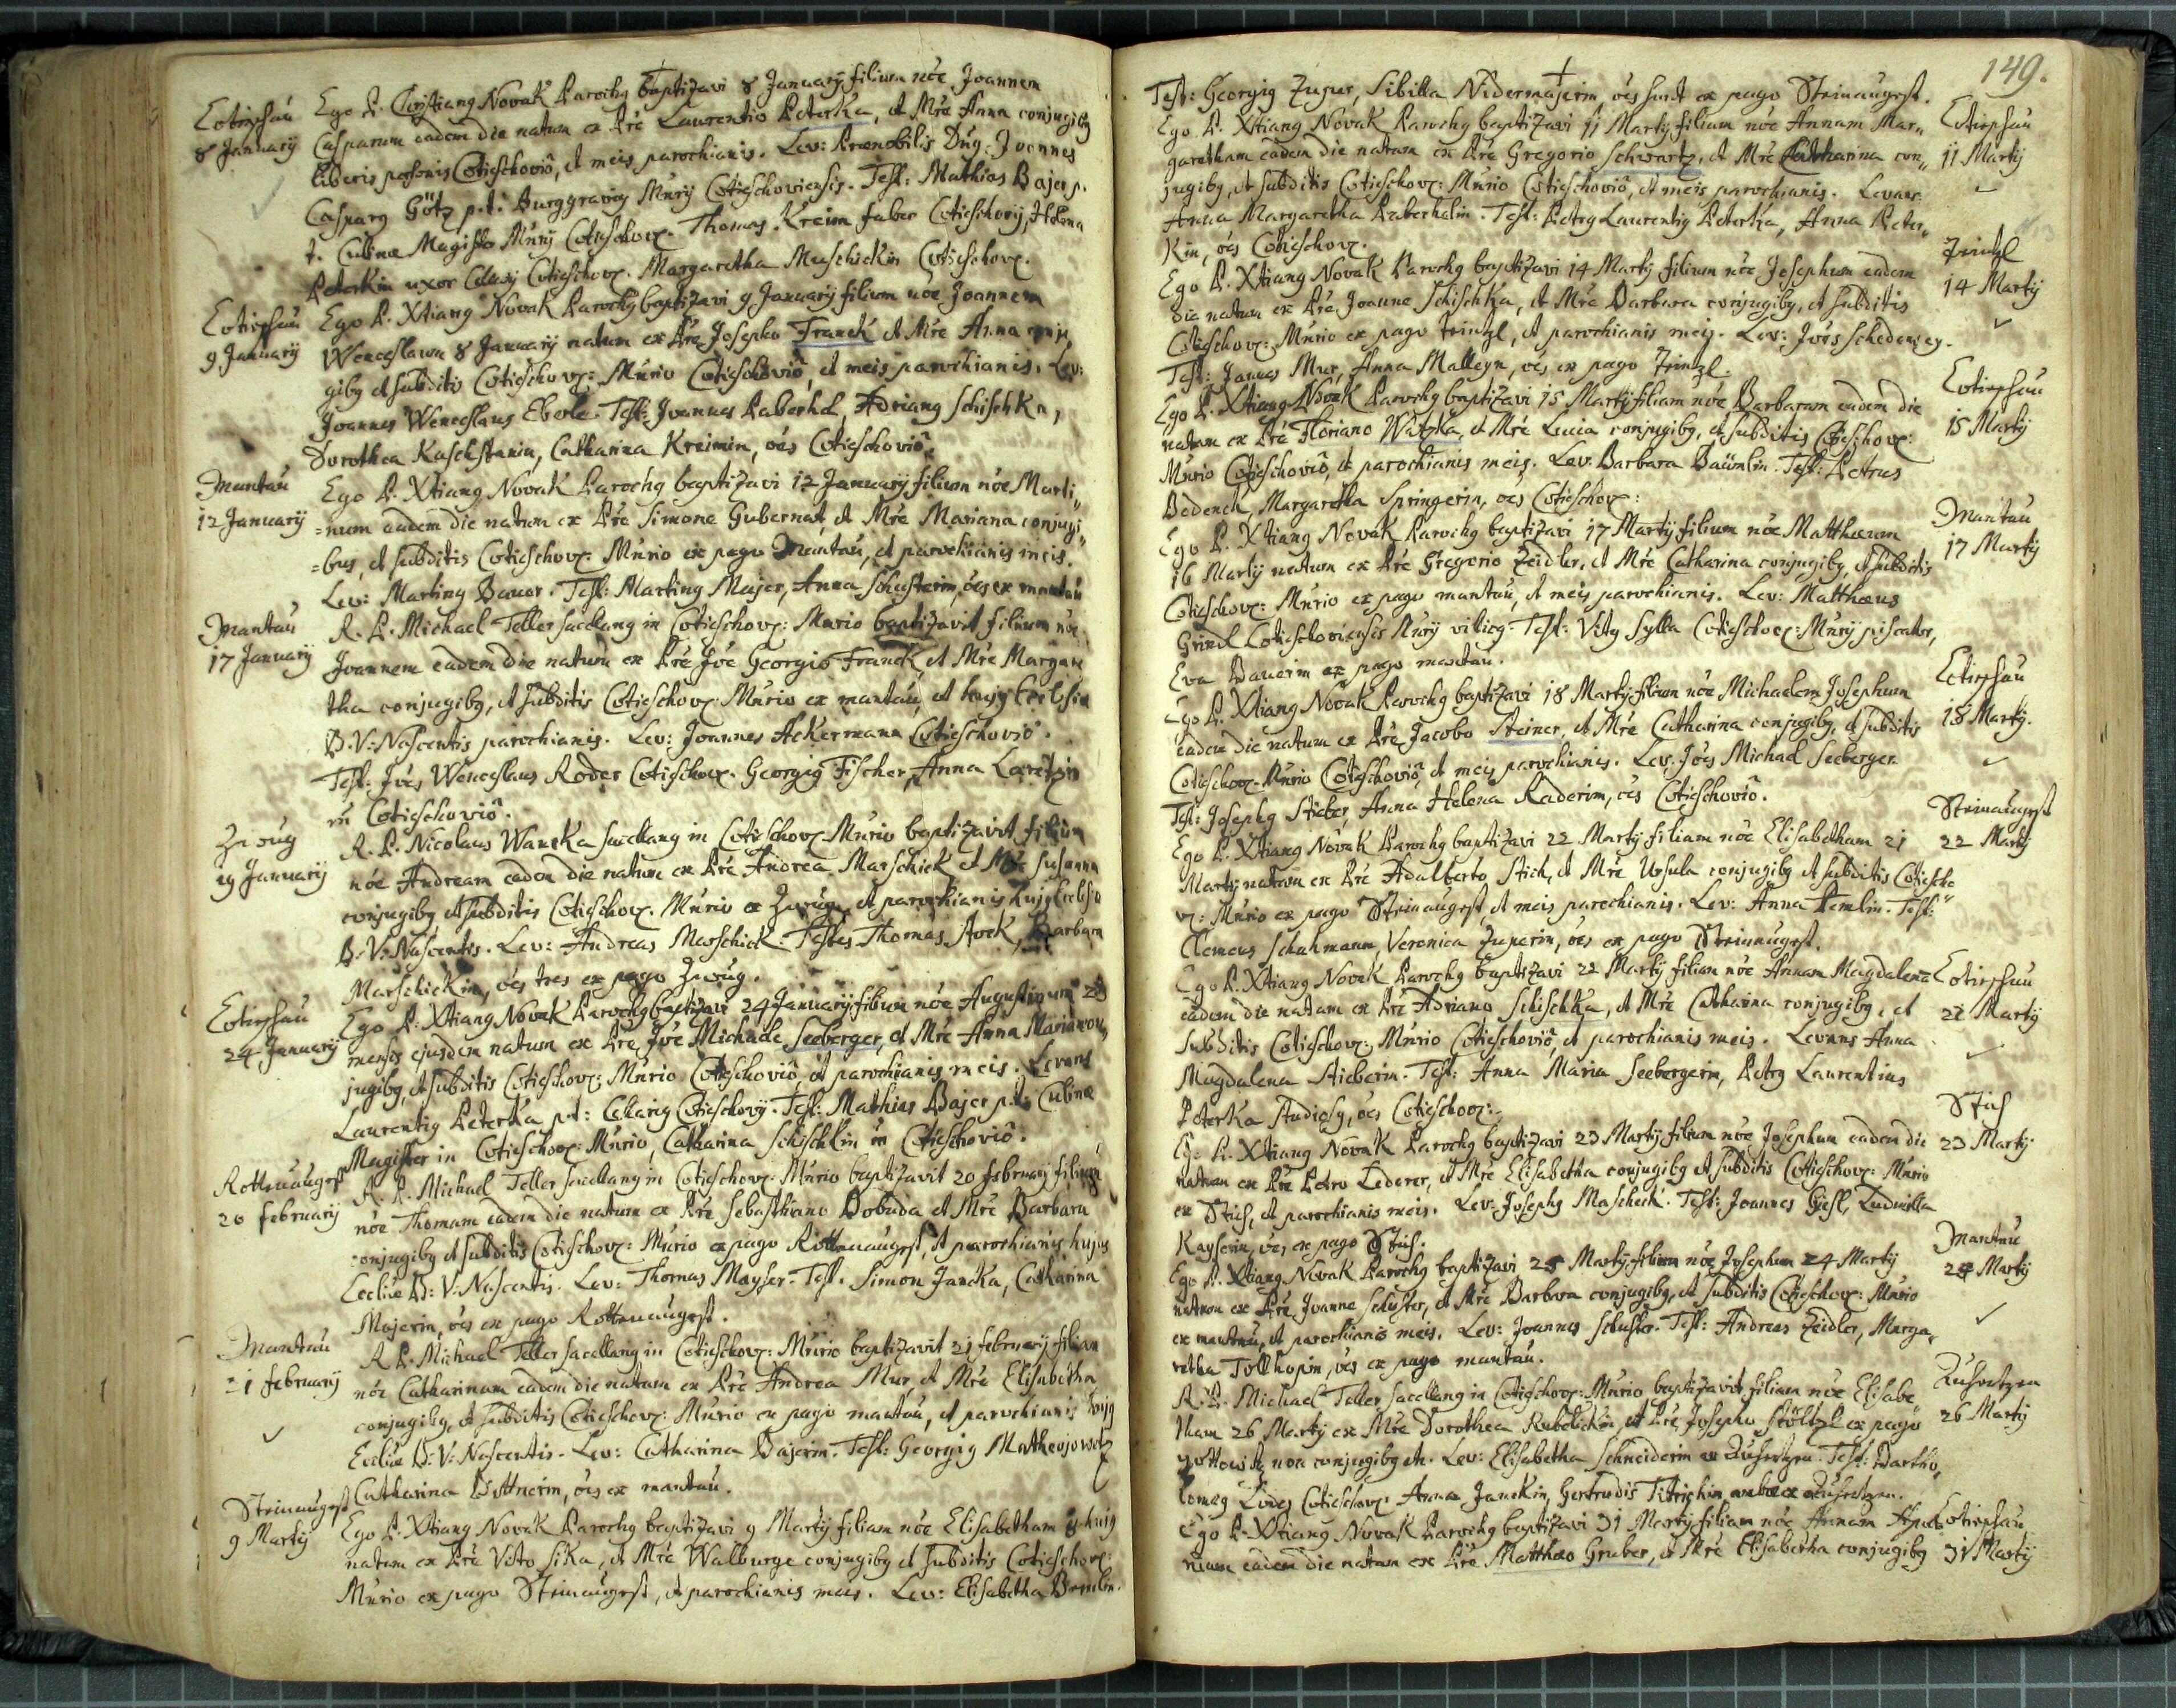 Cotieschau
8 January
Ego P. Christiang Novak Parochg baptizavi 8 January filium nõe Joannem
Casparum eadem die natum ex Pr̃e Laurentio Peterka, et Mr̃e Anna conjugibg
liberis personis Cotieschovio, et meis parochianis. Lev: Prænobilis Dñg Joannes
Casparg Götz p.t. Burggravig Mnrij Cotieschoviensis. Test: Mathias Bajer p.
t. Culinæ Magister Mnrij Cotieschov: Thomas Kreim faber Cotieschovij, Helena
Peterkin uxor Cotieschov: Margaretha Muschickin Cotieschov:
Cotieschau
9 January
Ego P. Xtiang Novak Parochg baptizavi 9 January filium nõe Joannem
Wenceslaum 8 January natum ex Pr̃e Josepho Franck et Mr̃e Anna conju
gibg et subditis Cotieschov: Mnrio Cotieschovio, et meis parochianis. Lev:
Joannes Wenceslaus Eberle. Test: Joannes Raberhel, Adriang Schischka,
Dorothea Kaschstanin, Catharina Kreimin, oẽs Cotieschovio.
Mantau
12 January
Ego P. Xtiang Novak Parochg baptizavi 12 January filium nõe Marti
=num eadem die natum ex Pr̃e Simone Gubernat et Mr̃e Mariana conjugi
=bus, et subditis Cotieschov: Mnrio ex pago Mantau, et parochianis meis.
Lev: Marting Bauer. Test: Marting Majer, Anna Schusterin, oẽs ex mantau
Mantau
17 January
R. P. Michael Teller sacellang in Cotieschov: Mnrio baptizavit filium nõe
Joannem eadem die natum ex Pr̃e Jõe Georgio Franck, et Mr̃e Margare
tha conjugibg, et subditis Cotieschov: Mnrio ex mantau, et hujg Ecclesiæ
B.V: Nascentis parochianis. Lev: Joannes Ackermann Cotieschovio.
Test: Joẽs Wenceslaus Roder Cotieschov: Georgig Fischer, Anna
in Cotieschovio.
Zwug
19 January
R. P. Nicolaus Wanska sacellang in Cotieschov: Mnrio baptizavit filium
nõe Andream eadem die natum ex Pr̃e Andrea Marschick et Mr̃e Susanna
conjugibg et subditis Cotieschov: Mnrio ex Zwug, et parochianis hujg Ecclesiæ
B.V: Nascentis. Lev: Andreas Marschick. Testes Thomas, Barbara
Marschickin, oẽs tres ex pago Zwug.
Cotieschau
24 January
Ego P. Xtiang Novak Parochg baptizavi 24 January filium nõe Augustinum 23
mensis ejusdem natum ex Pr̃e Jõe Michaele Seeberger, et Mr̃e Anna Maria con
jugibg, et subditis Cotieschov: Mnrio Cotieschovio, et parochianis meis. Levans
Laurentig Peterka p.t: Cellarig Cotieschovij. Test: Mathias Bajer p.t. Culinæ
Magister in Cotieschov: Mnrio, Catharina Schischkin in Cotieschovio.
Rottenaugest
20 february
R. P. Michael Teller sacellang in Cotieschov: Mnrio baptizavit 20 february filium
nõe Thomam eadem die natum ex Pr̃e Sebasthiano Dobuda et Mr̃e Barbara
conjugibg et subditis Cotieschov: Mnrio ex pago Rottenaugest, et parochianis hujus
Eccliæ B: V: Nascentis. Lev: Thomas Mayser. Test. Simon Janska, Catharina
Majerin, oẽs ex pago Rottenaugest.
Mantau
21 february
R. P. Michael Teller sacellang in Cotieschov: Mnrio baptizavit 21 february filiam
nõe Catharinam eadem die natam ex Pr̃e Andrea Mur, et Mr̃e Elisabetha
conjugibg, et subditis Cotieschov: Mnrio ex pago mantau, et parochianis hujg
Eccliæ B: V: Nascentis. Lev: Catharina Bajerin. Test: Georgig Matheojowetz
Catharina Bittnerin, oẽs ex mantau.
Steinaugest
9 Martij
Ego P. Xtiang Novak Parochg baptizavi 9 Martij filiam nõe Elisabetham 8 hujg
natam ex Pr̃e Vito Sika, et Mr̃e Walburge conjugibg et subditis Cotieschov:
Mnrio ex pago Steinaugest, et parochianis meis. Lev: Elisabetha Bemlin.
149.
Test: Georgig Zuper, Sibilla Nidermajerin, oẽs sunt ex pago Steinaugest.
Cotieschau
11 Martij
Ego P. Xtiang Novak Parochg baptizavi 11 Martij filiam nõe Annam Mar
garetham eadem die natam ex Pr̃e Gregorio Schwartz, et Mr̃e Catharina con
jugibg, et subditis Cotieschov: Mnrio Cotieschovio, et meis parochianis. Levans
Anna Margaretha Raberhelin. Test: Petrg Laurentig Peterka, Anna Peter
kin, oẽs Cotieschov.
Zeintzl
14 Martij
Ego P. Xtiang Novak Parochg baptizavi 14 Martij filium nõe Josephum eadem
die natum ex Pr̃e Joanne Schischka, et Mr̃e Barbara conjugibg, et subditis
Cotieschov: Mnrio ex pago Zeintzl, et parochianis meis. Lev: Joẽs Schedeniey.
Test: Jacobus Mur, Anna Malleyn, oẽs ex pago Zeintzl.
Cotieschau
15 Martij
Ego P. Xtiang Novak Parochg baptizavi 15 Martij filiam nõe Barbaram eadem die
natam ex Pr̃e Floriano Watzka, et Mr̃e Lucia conjugibg, et subditis Cotieschov:
Mnrio Cotieschovio, et parochianis meis. Lev: Barbara Baumlin. Test: Petrus
Bedenck, Margaretha Springerin, oẽs Cotieschov:
Mantau
17 Martij
Ego P. Xtiang Novak Parochg baptizavi 17 Martij filium nõe Matthæum
16 Martij natum ex Pr̃e Gregorio Zeidler, et Mr̃e Catharina conjugibg, et subditis
Cotieschov: Mnrio ex pago mantau, et meis parochianis. Lev: Matthæus
Grindl Cotieschoviensis Mnrij villicg. Test: Vitg Sylla Cotieschov: Mnrij piscator,
Eva Bauerin ex pago mantau.
Cotieschau
18 Martij.
Ego P. Xtiang Novak Parochg baptizavi 18 Martij filium nõe Michaelem Josephum
eadem die natum ex Pr̃e Jacobo Steiner, et Mr̃e Catharina conjugibg, et subditis
Cotieschov: Mnrio Cotieschovio, et meis parochianis. Lev: Joẽs Michael Seeberger.
Test: Josephg Stieber, Anna Helena Raderin, oẽs Cotieschovio.
Steinaugest
22 Martij
Ego P. Xtiang Novak Parochg baptizavi 22 Martij filiam nõe Elisabetham 21
Martij natam ex Pr̃e Adalberto Stich, et Mr̃e Ursula conjugibg et subditis Cotiescho
v: Mnrio ex pago Steinaugest, et meis parochianis. Lev: Anna Bemlin. Test:
Clemens Schuhmann, Veronica Zuperin, oẽs ex pago Steinaugest.
Cotieschau
22 Martij
Ego P. Xtiang Novak Parochg baptizavi 22 Martij filiam nõe Annam Magdalenam
eadem die natam ex Pr̃e Adriano Schischka, et Mr̃e Catharina conjugibg, et
subditis Cotieschov: Mnrio Cotieschovio, et parochianis meis. Levans Anna
Magdalena Stieberin. Test: Anna Maria Seebergerin, Petrg Laurentius
Peterka Studiosg, oẽs Cotieschov:
Stich
23 Martij
Ego P. Xtiang Novak Parochg baptizavi 23 Martij filium nõe Josephum eadem die
natum ex Pr̃e Petro Lederer, et Mr̃e Elisabetha conjugibg et subditis Cotieschov: Mnrio
ex Stich, et parochianis meis. Lev: Josephg Mascheck. Test: Joannes Giesl, Ludmilla
Kayserin, oẽs ex pago Stich.
Mantau
25 Martij
Ego P. Xtiang Novak Parochg baptizavi 25 Martij filium nõe Josephum 24 Martij
natum ex Pr̃e Joanne Schuster, et Mr̃e Barbara conjugibg, et subditis Cotieschov: Mnrio
ex mantau, et parochianis meis. Lev: Joannes Schuster. Test: Andreas Zeidler, Marga
retha Tollhopin, oẽs ex pago mantau.
Auhertzen
26 Martij
R. P. Michael Teller sacellang in Cotieschov: Mnrio baptizavit filiam nõe Elisabe
tham 26 Martij ex Mr̃e Dorothea Rubetickin, et Pr̃e Josepho Stöltzl ex pago
gottowitz non conjugibg etc. Lev: Elisabetha Schneiderin ex Auhertzen. Test: Bartho
lomæg Lindes Cotieschov: Anna Janskin, Gertrudis Titrichin ambæ ex Auhertzen.
Cotieschau
31 Martij
Ego P. Xtiang Novak Parochg baptizavi 31 Martij filiam nõe Annam
eadem die natam ex Pr̃e Matthæo Gruber, et Mr̃e Elisabetha conjugibg